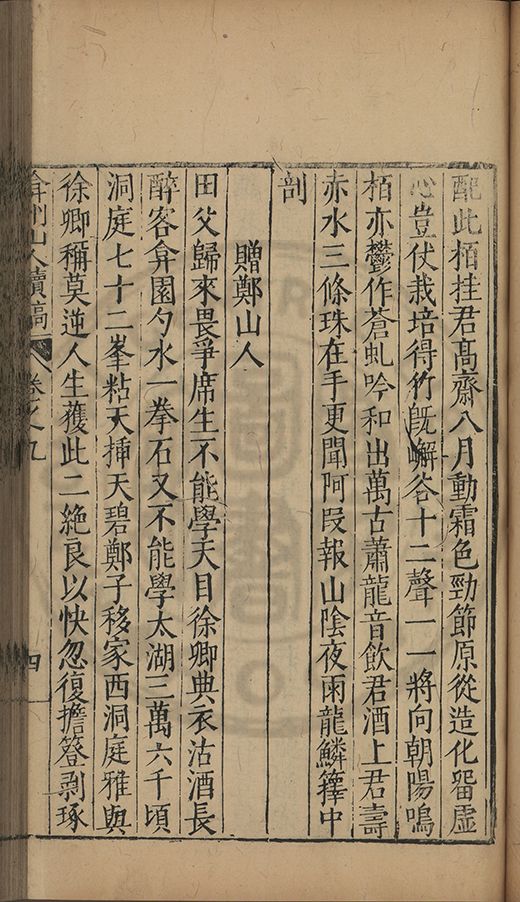 配此栢挂君高齋八月動霜色勁節原從造化畱虛
心豈仗栽培得竹既嶰谷十二聲一一將向朝陽鳴
栢亦鬱作蒼虬吟和出萬古蕭龍音飲君酒上君壽
赤水三條珠在手更聞阿段報山陰夜雨龍鱗籜中
剖
贈鄭山人
田父歸來畏爭席生不能學天目徐卿典衣沽酒長
醉客弇園勺水一拳石又不能學太湖三萬六千頃
洞庭七十二峯粘天揷天碧鄭子移家西洞庭雅與
徐卿稱莫逆人生獲此二絶良以快忽復擔簦剥琢
弇州山人續稿 卷之九 四